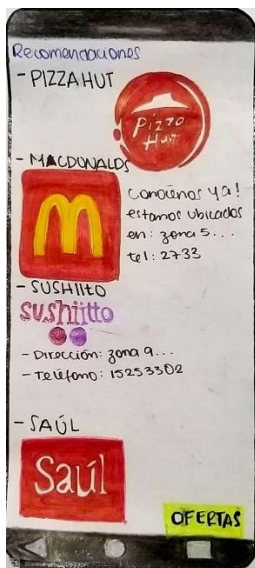 Recomendaciones
- PIZZA HUT
Pizza
Hut
- MACDONALDS
M
Conócenos ya!
estamos ubicados
en: zona 5...
tel: 2733
- SUSHIITO
sushiitto
- Dirección: zona 9...
- Teléfono: 15253302
- SAÚL
Saúl
OFERTAS